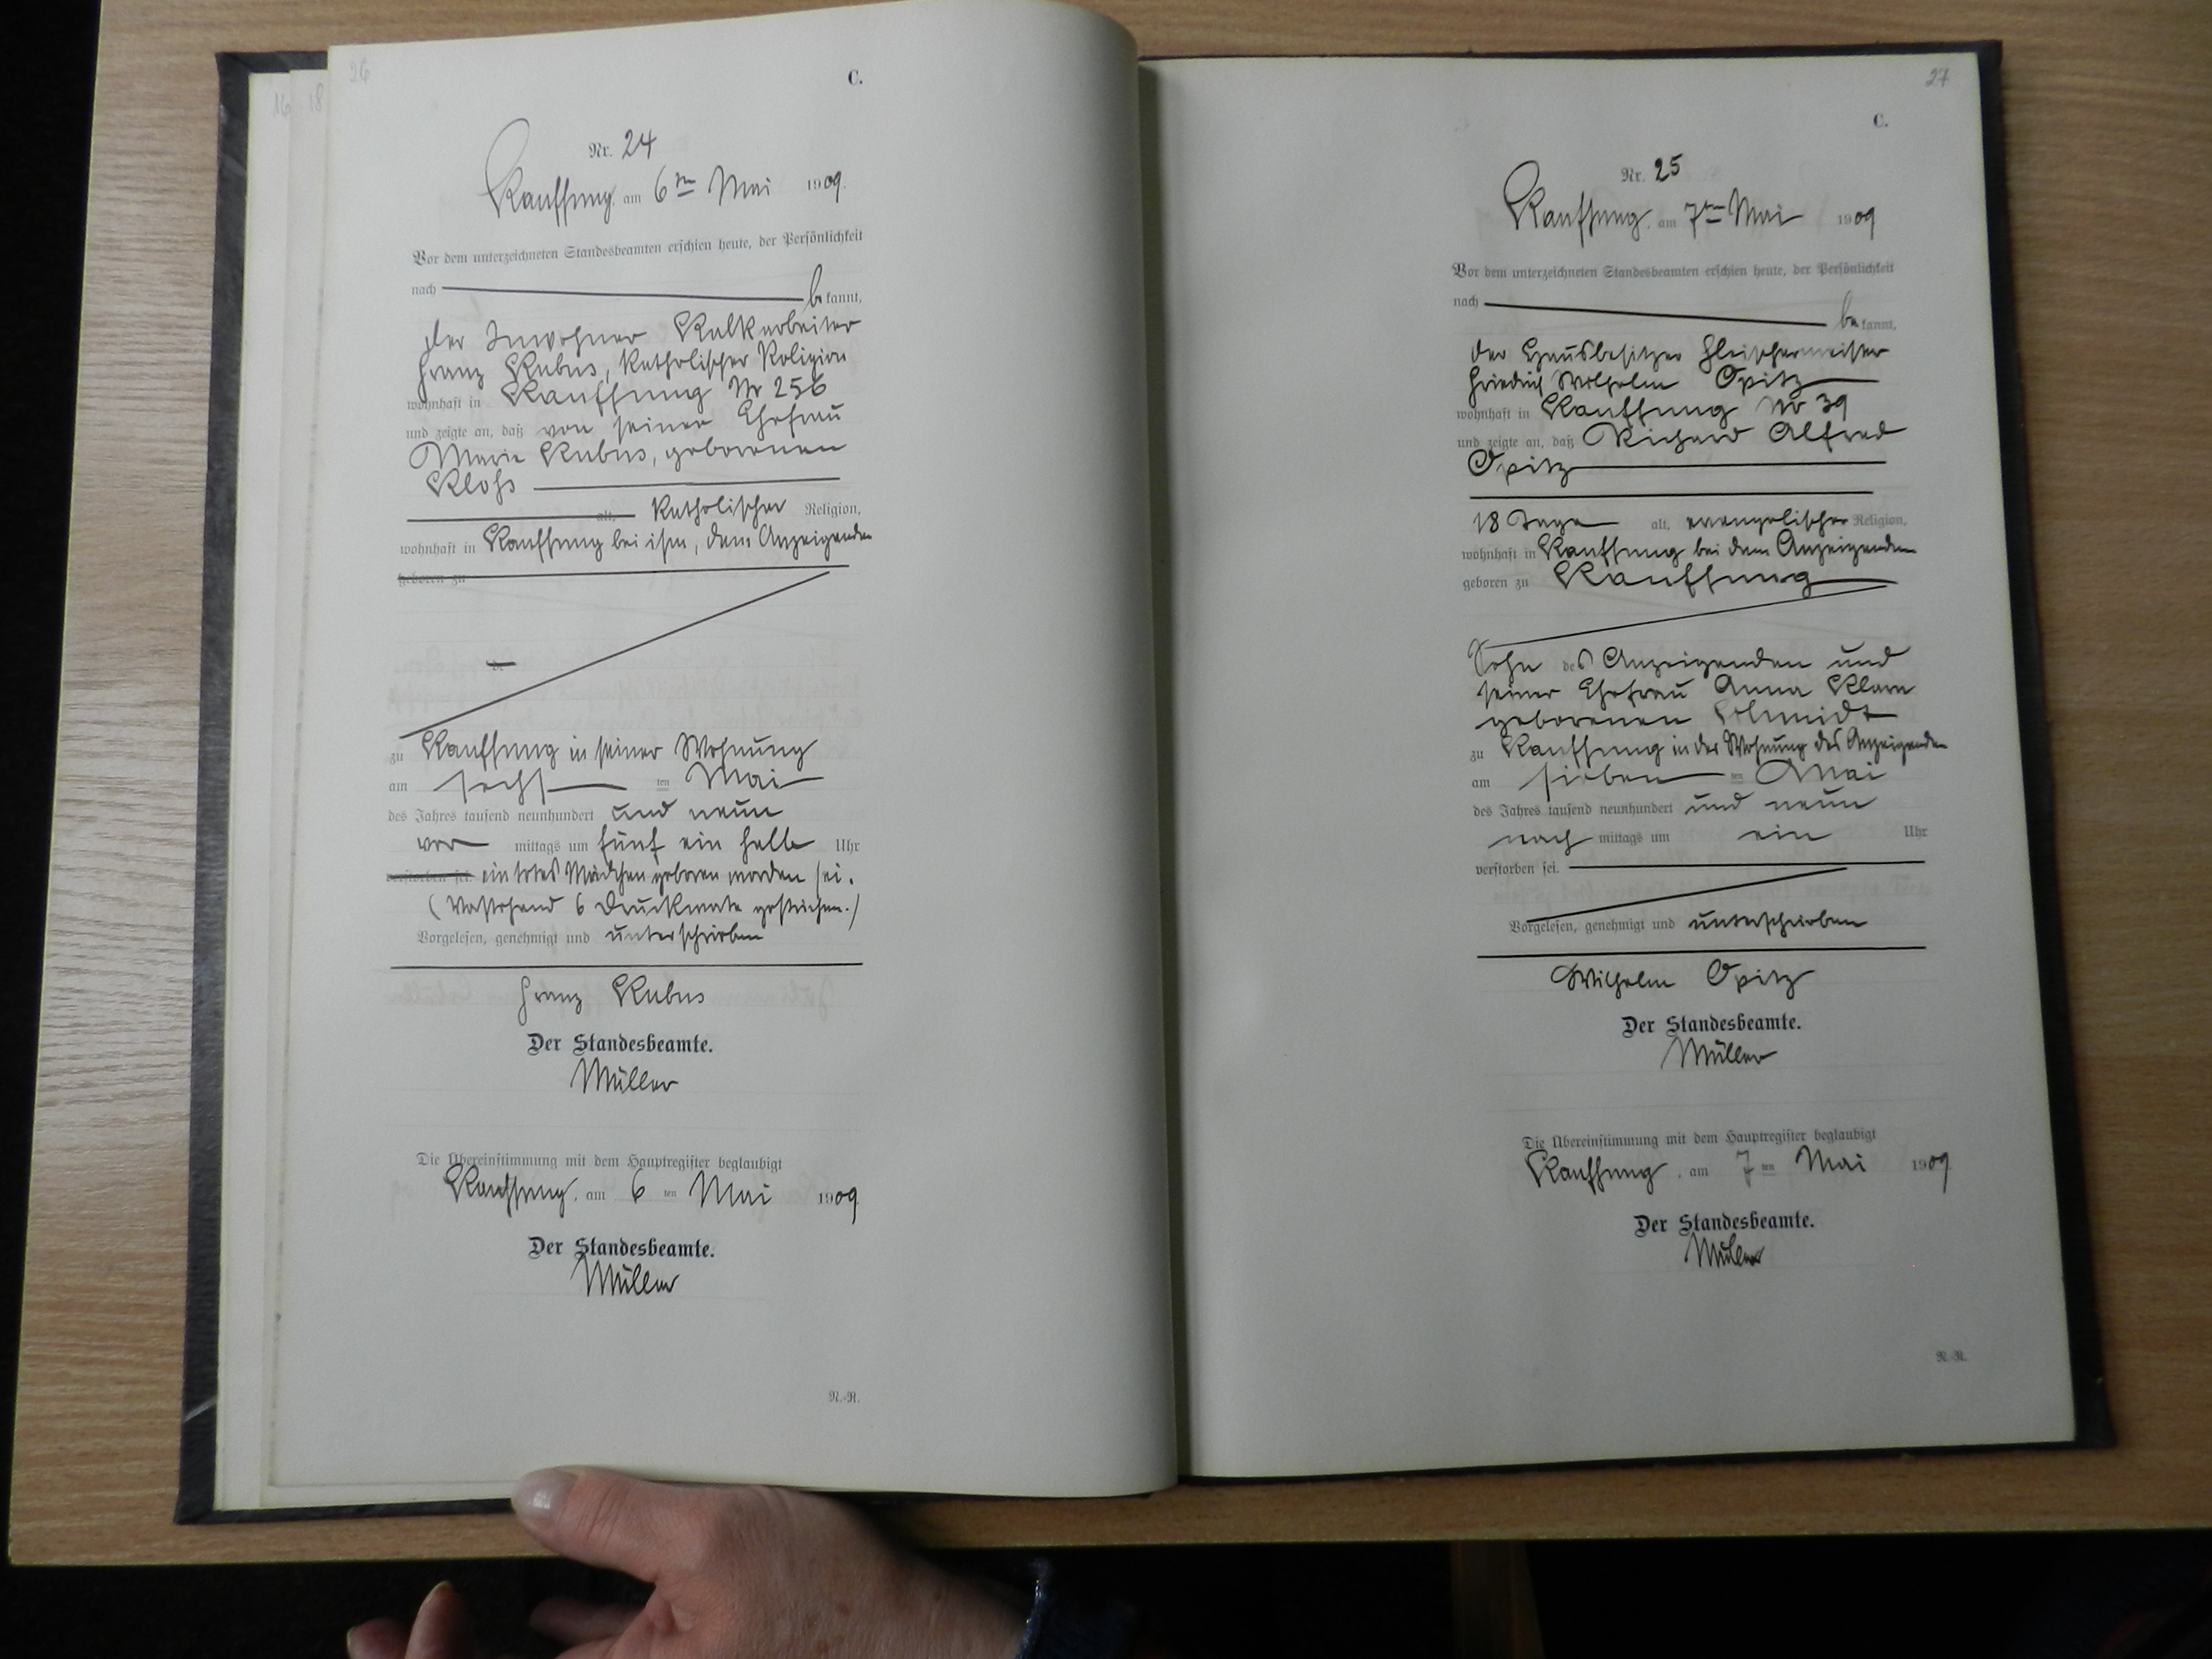 16 18 26
C.
Nr. 24
Kauffung, am 6ten Mai 1909.
Vor dem unterzeichneten Standesbeamten erschien heute, der Persönlichkeit
nach be kannt,
der Inwohner Kalkarbeiter
Franz Kubus, katholischer Religion
wohnhaft in Kauffung Nr 256
und zeigte an, daß von seiner Ehefrau
Marie Kubus, geborenen
Kloss
alt, katholischer Religion,
wohnhaft in Kauffung bei ihm, dem Anzeigenden
geboren zu
de
zu Kauffung in seiner Wohnung
am sechs ten Mai
des Jahres tausend neunhundert und neun
vor mittags um fünf ein halb Uhr
verstorben sei. ein totes Mädchen geboren worden sei.
(Vorstehend 6 Druckworte gestrichen.)
Vorgelesen, genehmigt und unterschrieben
Franz Kubus
Der Standesbeamte.
Müller
Die Übereinstimmung mit dem Hauptregister beglaubigt
Kauffung, am 6 ten Mai 1909
Der Standesbeamte.
Müller
N.-R.
27
C.
Nr. 25
Kauffung, am 7ten Mai 1909
Vor dem unterzeichneten Standesbeamten erschien heute, der Persönlichkeit
nach be kannt,
der Hausbesitzer Fleischermeister
Friedrich Wilhelm Opitz
wohnhaft in Kauffung Nr 39
und zeigte an, daß Richard Alfred
Opitz
18 Tage alt, evangelischer Religion,
wohnhaft in Kauffung bei dem Anzeigenden
geboren zu Kauffung
Sohn des Anzeigenden und
seiner Ehefrau Anna Klara
geborenen Schmidt
zu Kauffung in der Wohnung des Anzeigenden
am sieben ten Mai
des Jahres tausend neunhundert und neun
nach mittags um ein Uhr
verstorben sei.
Vorgelesen, genehmigt und unterschrieben
Wilhelm Opitz
Der Standesbeamte.
Müller
Die Übereinstimmung mit dem Hauptregister beglaubigt
Kauffung, am 7 ten Mai 1909
Der Standesbeamte.
Müller
N.-R.